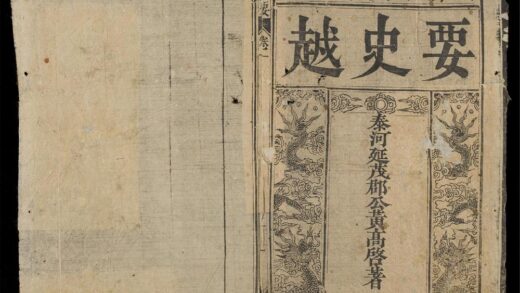 越史要
泰河延茂郡公黃高啓著